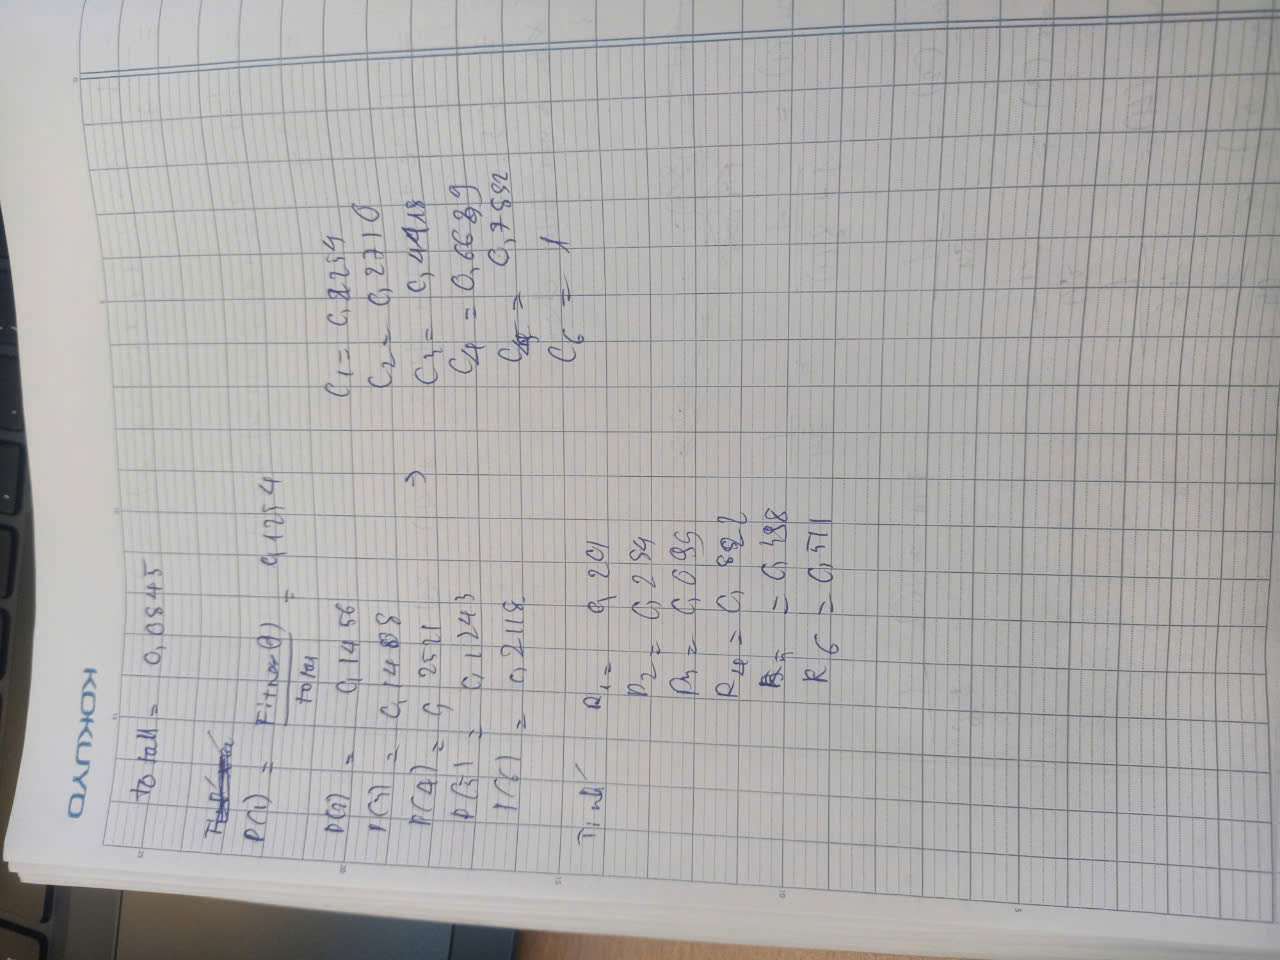 KOKUYO
total = 0,0845
P(1) = Fitness(1) / total = 0,1254
P(2) = 0,1456
P(3) = 0,1408
P(4) = 0,2521
P(5) = 0,1243
P(6) = 0,2118
=>
C1 = 0,2254
C2 = 0,2710
C3 = 0,4418
C4 = 0,6639
C5 = 0,7882
C6 = 1
R1 = 0,201
R2 = 0,284
R3 = 0,099
R4 = 0,822
R5 = 0,398
R6 = 0,511